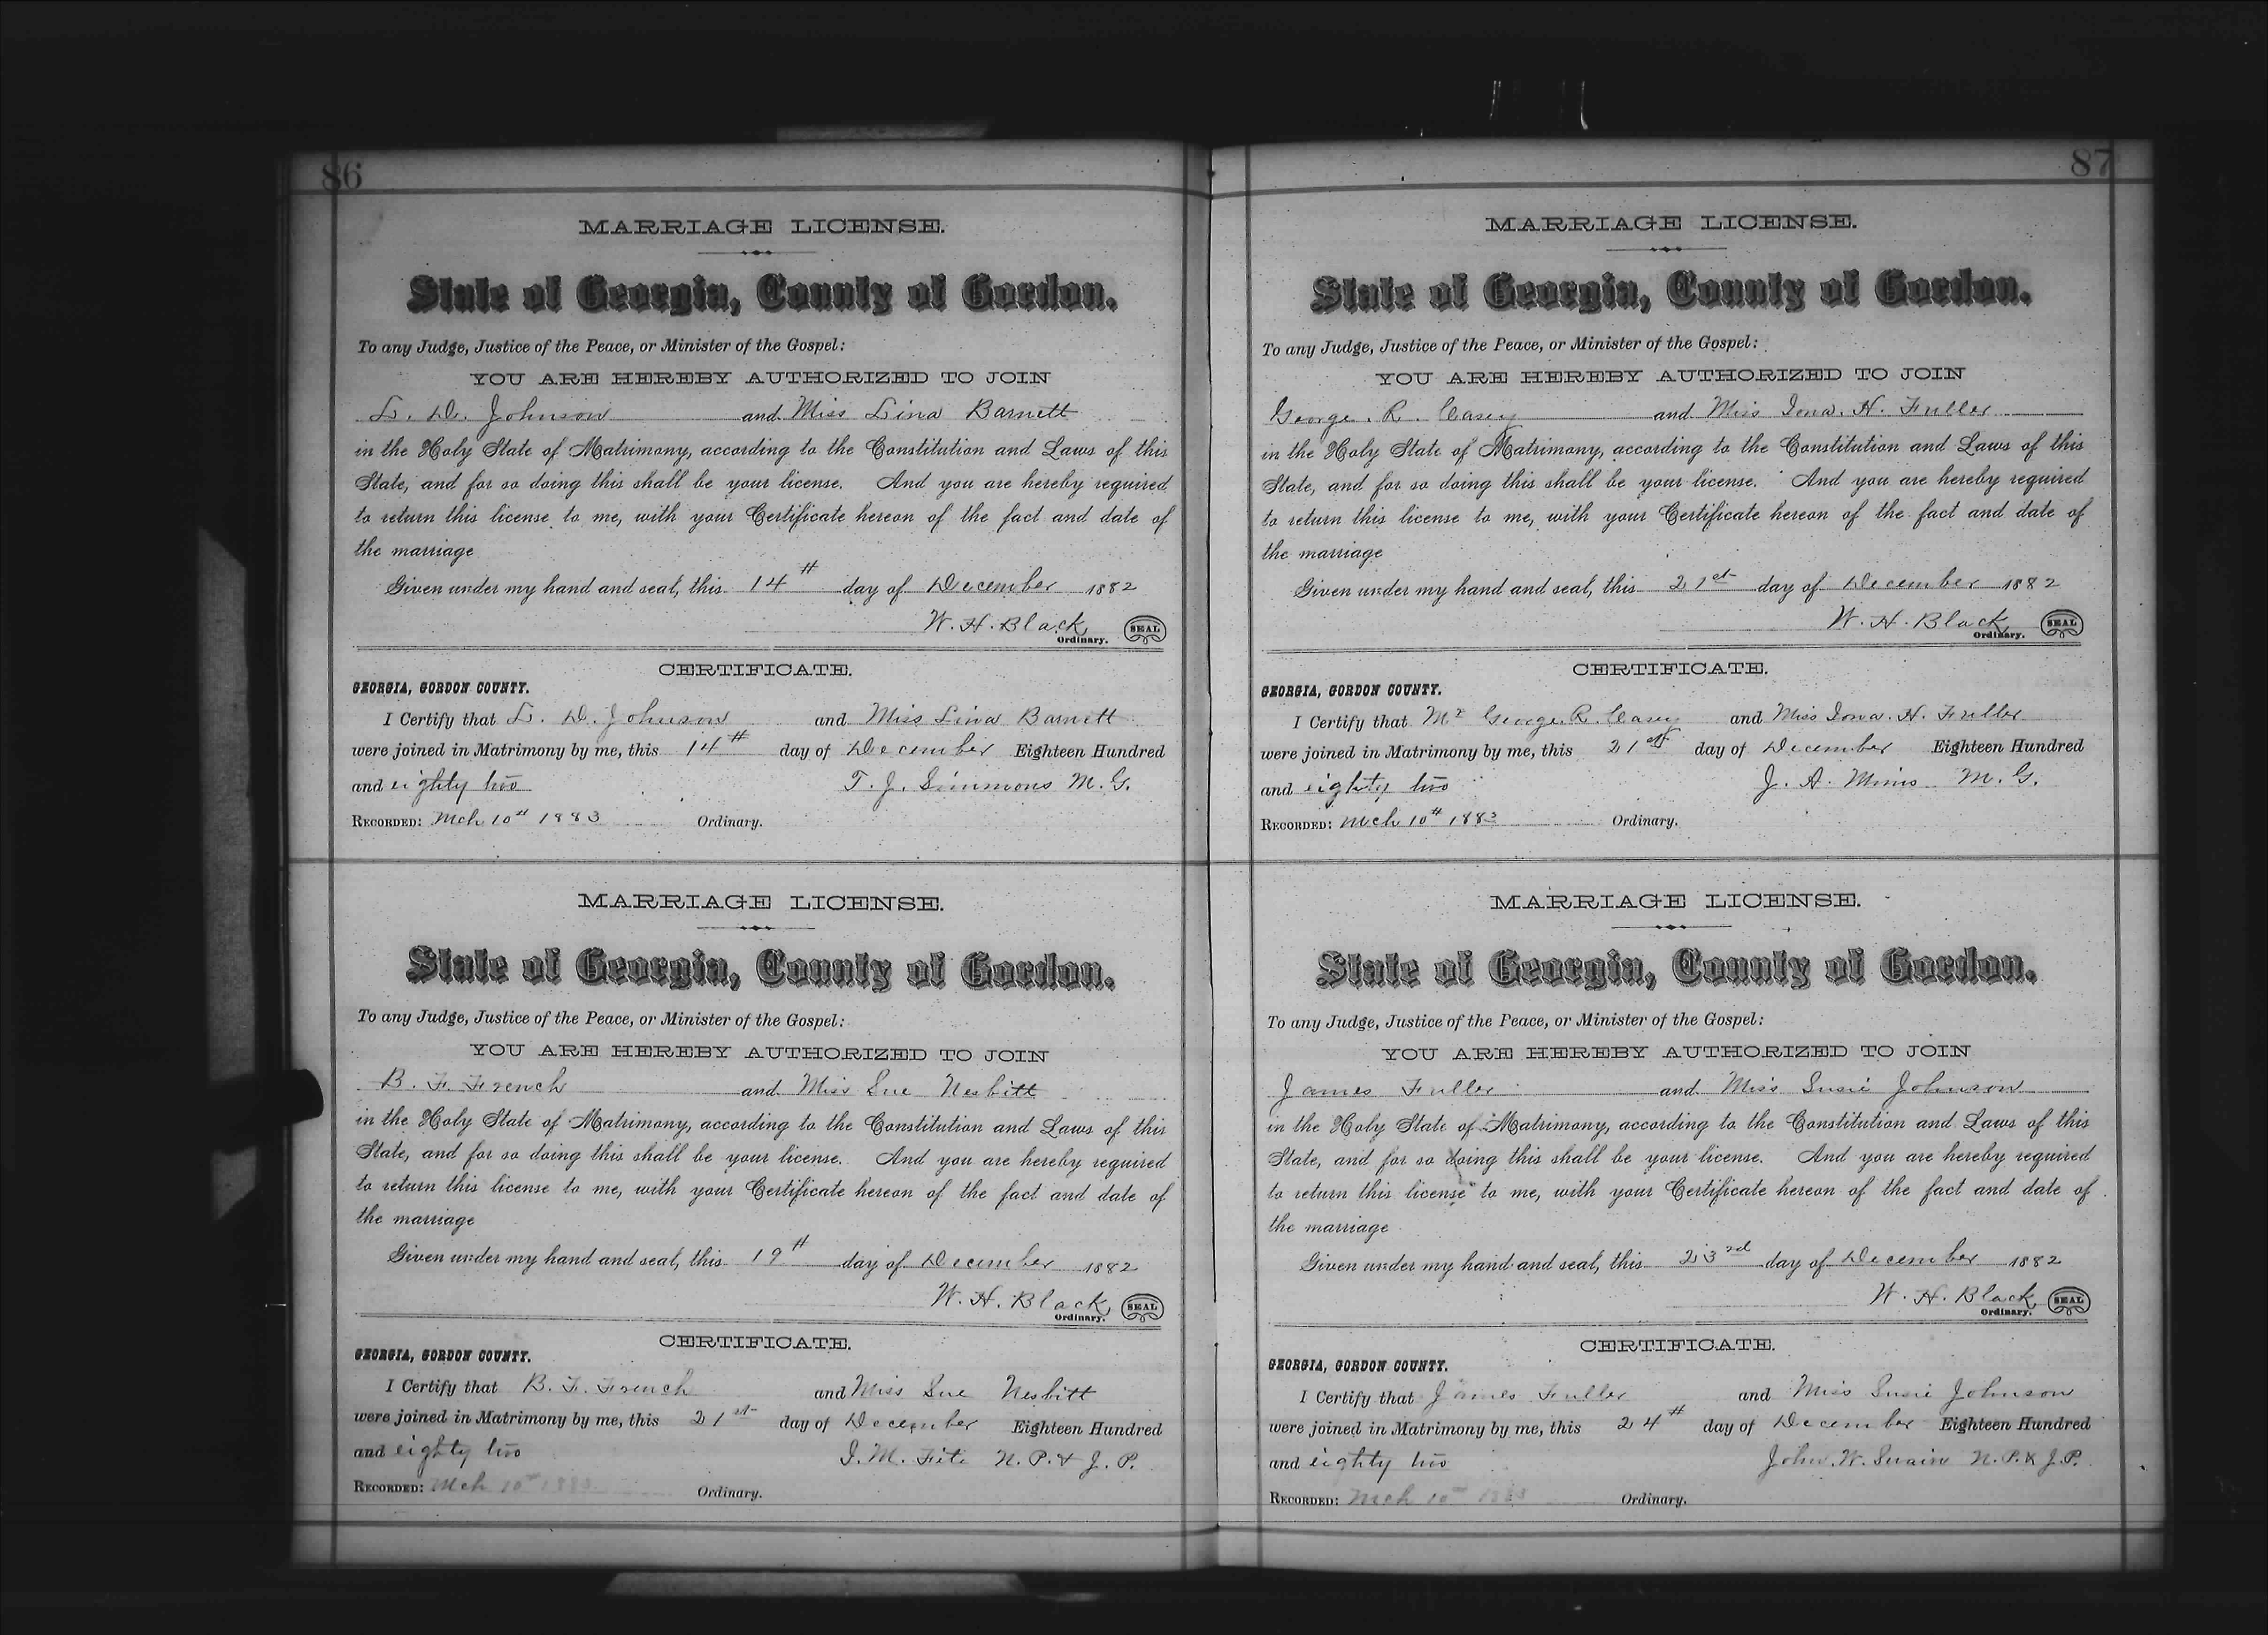 86
MARRIAGE LICENSE.
State of Georgia, County of Gordon.
To any Judge, Justice of the Peace, or Minister of the Gospel:
YOU ARE HEREBY AUTHORIZED TO JOIN
L. D. Johnson and Miss Lina Barnett
in the Holy State of Matrimony, according to the Constitution and Laws of this
State, and for so doing this shall be your license. And you are hereby required
to return this license to me, with your Certificate hereon of the fact and date of
the marriage
Given under my hand and seal, this 14th day of December 1882
W. H. Black
Ordinary. SEAL
CERTIFICATE.
GEORGIA, GORDON COUNTY.
I Certify that L. D. Johnson and Miss Lina Barnett
were joined in Matrimony by me, this 14th day of December Eighteen Hundred
and eighty two T. J. Simmons M. G.
RECORDED: Mch 10th 1883 Ordinary.
MARRIAGE LICENSE.
State of Georgia, County of Gordon.
To any Judge, Justice of the Peace, or Minister of the Gospel:
YOU ARE HEREBY AUTHORIZED TO JOIN
B. F. French and Miss Sue Nesbitt
in the Holy State of Matrimony, according to the Constitution and Laws of this
State, and for so doing this shall be your license. And you are hereby required
to return this license to me, with your Certificate hereon of the fact and date of
the marriage
Given under my hand and seal, this 19th day of December 1882
W. H. Black
Ordinary. SEAL
CERTIFICATE.
GEORGIA, GORDON COUNTY.
I Certify that B. F. French and Miss Sue Nesbitt
were joined in Matrimony by me, this 21st day of December Eighteen Hundred
and eighty two I. M. Fite N. P. & J. P.
RECORDED: Mch 10th 1883 Ordinary.
87
MARRIAGE LICENSE.
State of Georgia, County of Gordon.
To any Judge, Justice of the Peace, or Minister of the Gospel:
YOU ARE HEREBY AUTHORIZED TO JOIN
George. R. Casey and Miss Iowa. H. Fuller
in the Holy State of Matrimony, according to the Constitution and Laws of this
State, and for so doing this shall be your license. And you are hereby required
to return this license to me, with your Certificate hereon of the fact and date of
the marriage
Given under my hand and seal, this 21st day of December 1882
W. H. Black
Ordinary. SEAL
CERTIFICATE.
GEORGIA, GORDON COUNTY.
I Certify that Mr George. R. Casey and Miss Iowa. H. Fuller
were joined in Matrimony by me, this 21st day of December Eighteen Hundred
and eighty two J. A. Mims M. G.
RECORDED: Mch 10th 1883 Ordinary.
MARRIAGE LICENSE.
State of Georgia, County of Gordon.
To any Judge, Justice of the Peace, or Minister of the Gospel:
YOU ARE HEREBY AUTHORIZED TO JOIN
James Fuller and Miss Susie Johnson
in the Holy State of Matrimony, according to the Constitution and Laws of this
State, and for so doing this shall be your license. And you are hereby required
to return this license to me, with your Certificate hereon of the fact and date of
the marriage
Given under my hand and seal, this 23rd day of December 1882
W. H. Black
Ordinary. SEAL
CERTIFICATE.
GEORGIA, GORDON COUNTY.
I Certify that James Fuller and Miss Susie Johnson
were joined in Matrimony by me, this 24th day of December Eighteen Hundred
and eighty two John. W. Swain N. P. & J. P.
RECORDED: Mch 10th 1883 Ordinary.